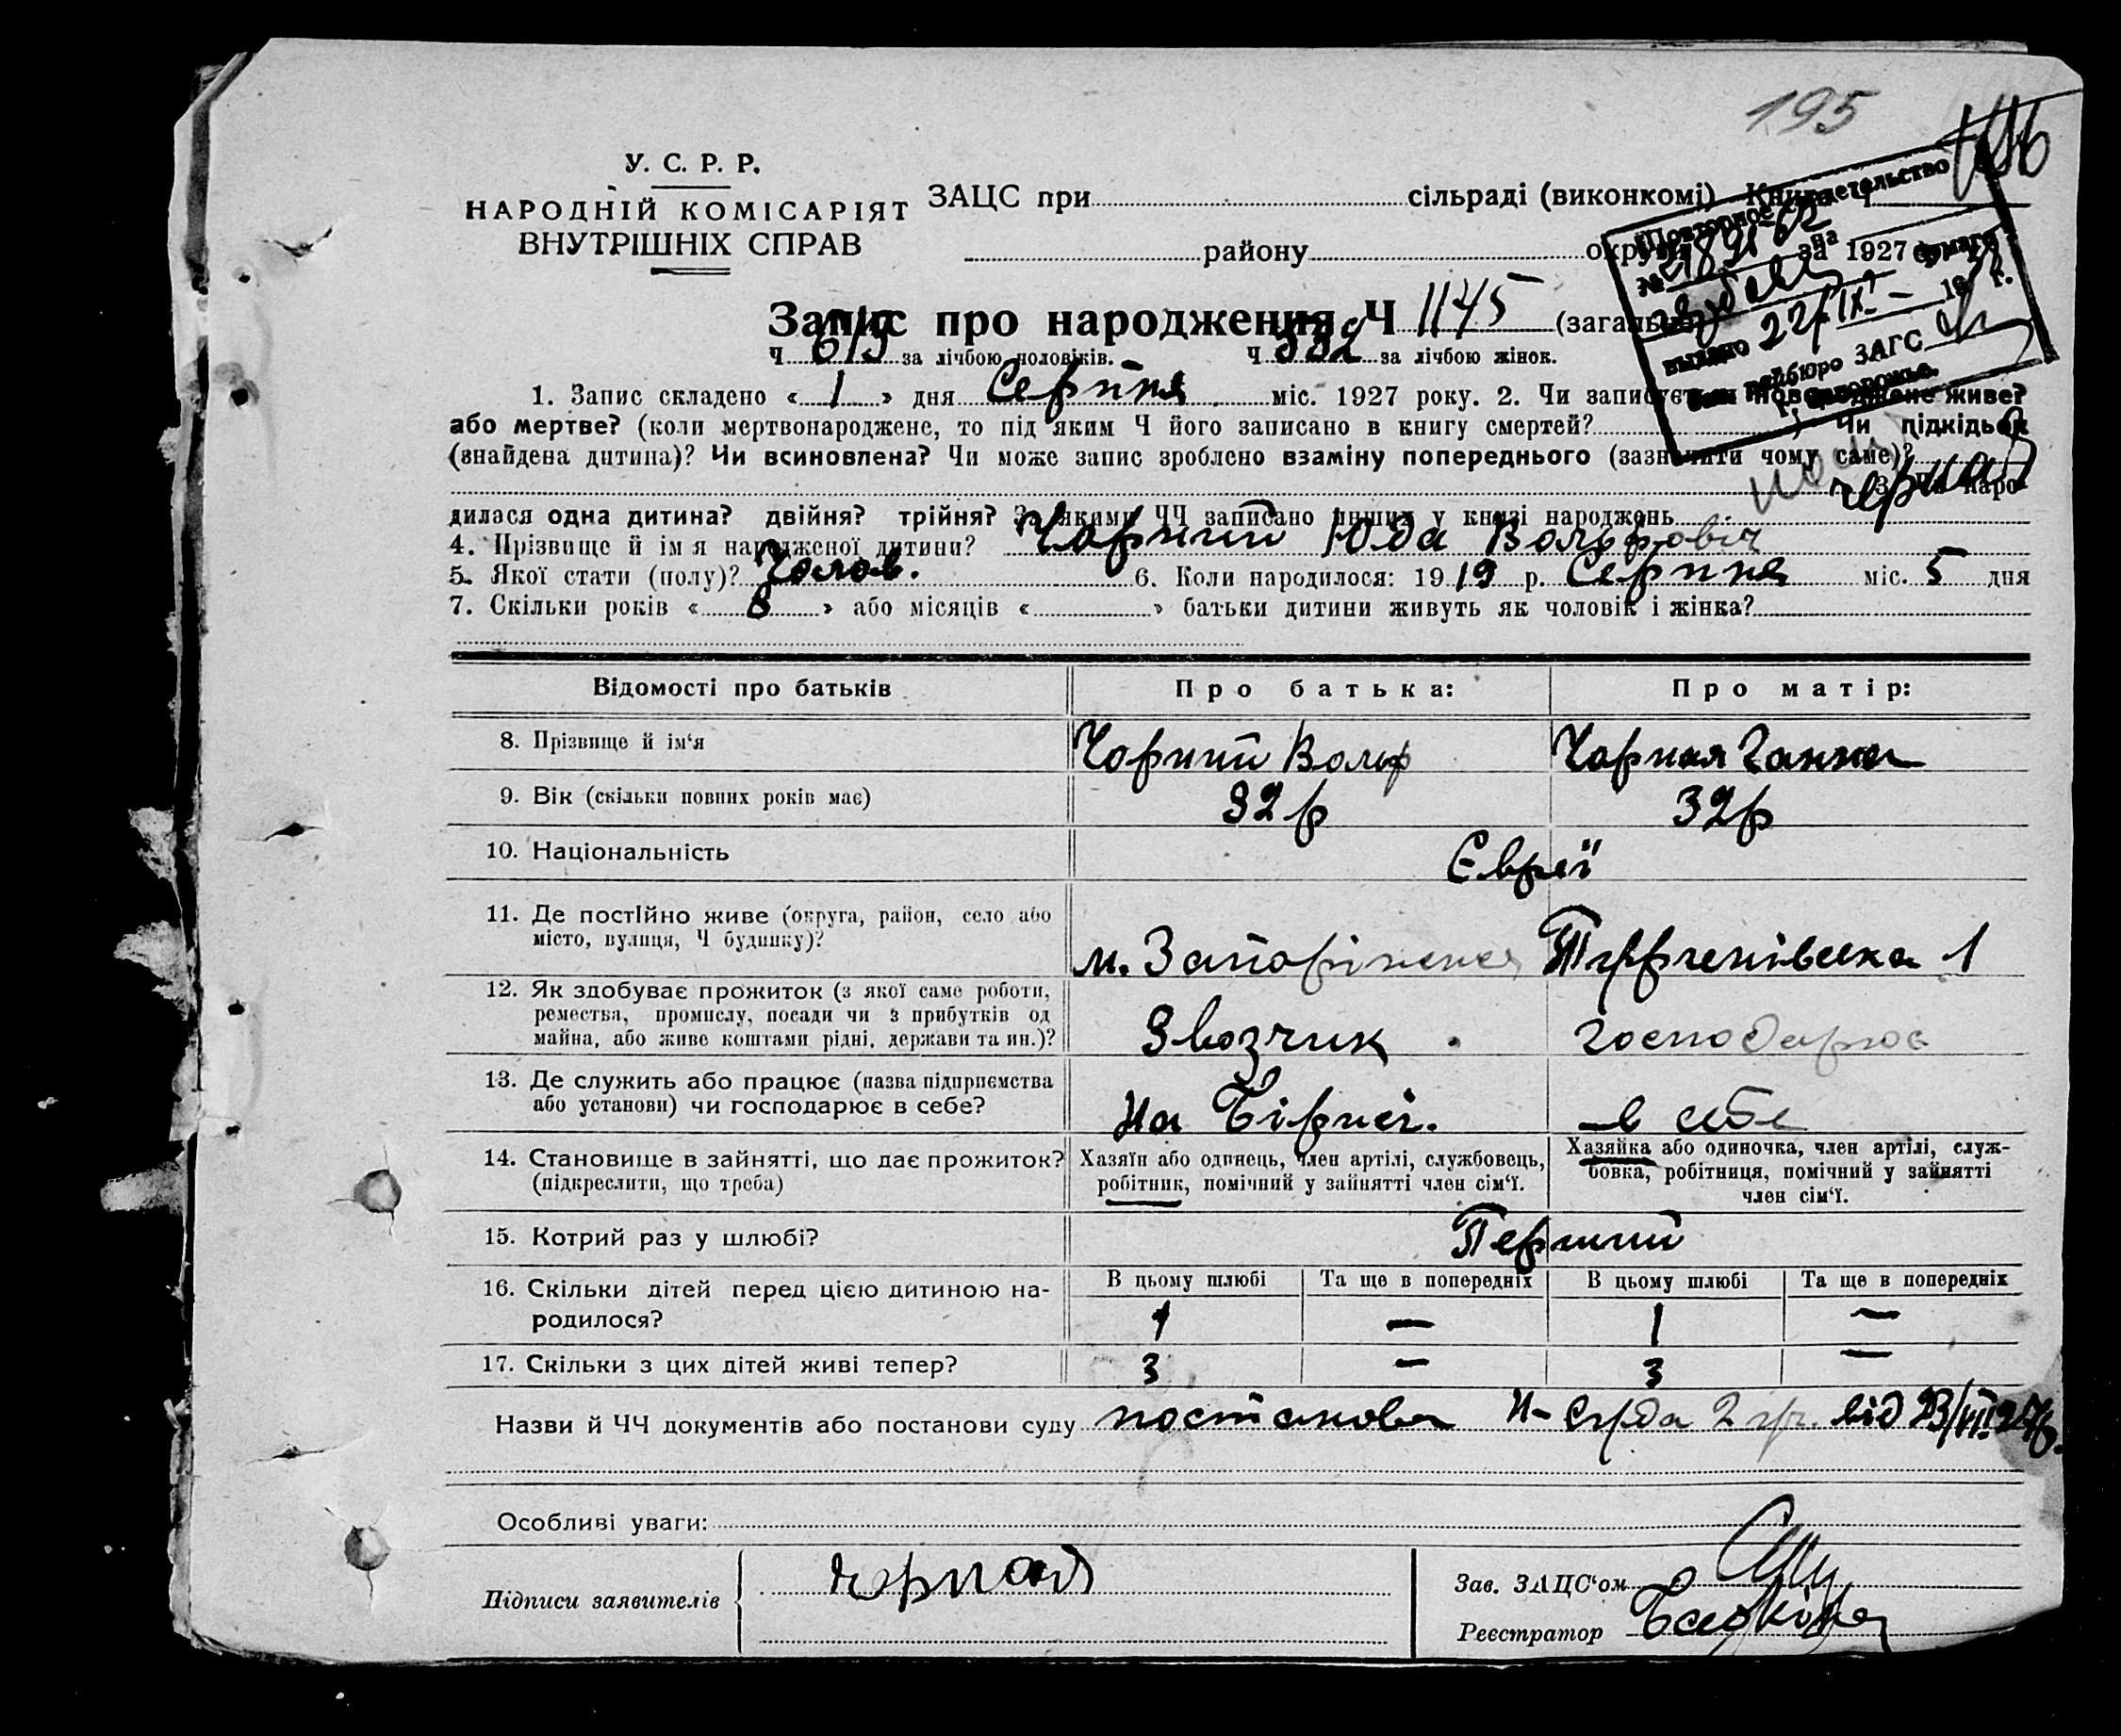 195
196
У. С. Р. Р.
НАРОДНІЙ КОМІСАРІЯТ
ВНУТРІШНІХ СПРАВ
ЗАЦС при сільраді (виконкомі) Книга Ч
району округи за 1927
Повторное свидетельство
№
выдано 22/IX 19 г.
райбюро ЗАГС
г. Запорожье.
Запис про народження Ч 1145 (загальний)
Ч 613 за лічбою чоловіків. Ч 532 за лічбою жінок.
1. Запис складено « 1 » дня Серпня міс. 1927 року. 2. Чи записується новороджене живе?
або мертве? (коли мертвонароджене, то під яким Ч його записано в книгу смертей? ) Чи підкідьок
(знайдена дитина)? Чи всиновлена? Чи може запис зроблено взаміну попереднього (зазначити чому саме)?
3. Чи наро-
дилася одна дитина? двійня? трійня? За якими ЧЧ записано инших у книзі народжень
4. Прізвище й ім я народженої дитини? Чорний Юда Вольфовіч
5. Якої стати (полу)? Чолов. 6. Коли народилося: 1919 р. Серпня міс. 5 дня
7. Скільки років « 8 » або місяців « » батьки дитини живуть як чоловік і жінка?
Відомості про батьків Про батька: Про матір:
8. Прізвище й ім‘я Чорний Вольф Чорная Ганна
9. Вік (скільки повних років має) 32 р 32 р
10. Національність Євреї
11. Де постійно живе (округа, район, село або
місто, вулиця, Ч будинку)? м. Запоріжжя 1
12. Як здобуває прожиток (з якої саме роботи,
ремества, промислу, посади чи з прибутків од
майна, або живе коштами рідні, держави та ин.)? Звозчик господарює
13. Де служить або працює (назва підприємства
або установи) чи господарює в себе? На Біржі. в себе
14. Становище в зайнятті, що дає прожиток?
(підкреслити, що треба)
Хазяїн або одинець, член артілі, службовець,
робітник, помічний у зайнятті член сім‘ї.
Хазяйка або одиночка, член артілі, служ-
бовка, робітниця, помічний у зайнятті
член сім‘ї.
15. Котрий раз у шлюбі? Перший
16. Скільки дітей перед цією дитиною на-
родилося?
В цьому шлюбі Та ще в попередніх В цьому шлюбі Та ще в попередніх
1 — 1 —
17. Скільки з цих дітей живі тепер? 3 — 3 —
Назви й ЧЧ документів або постанови суду постанова Н-Суда 2 від 23/VII 27р.
Особливі уваги:
Підписи заявителів
Зав. ЗАЦС‘ом
Реєстратор